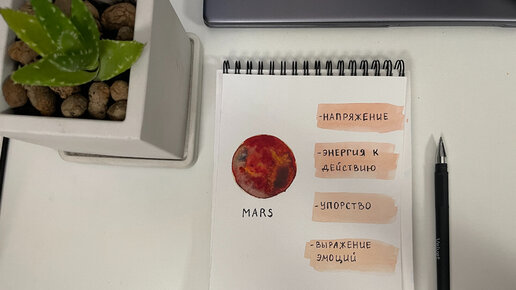 -НАПРЯЖЕНИЕ
-ЭНЕРГИЯ К
ДЕЙСТВИЮ
MARS
-УПОРСТВО
-ВЫРАЖЕНИЕ
ЭМОЦИЙ